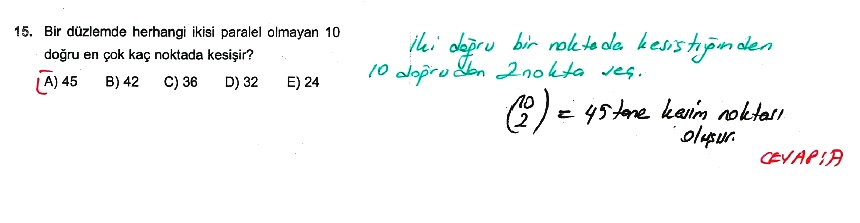 15. Bir düzlemde herhangi ikisi paralel olmayan 10
doğru en çok kaç noktada kesişir?
A) 45 B) 42 C) 36 D) 32 E) 24
İki doğru bir noktada kesiştiğinden
10 doğrudan 2 nokta seç.
(10 2) = 45 tane kesim noktası
oluşur.
CEVAP: A